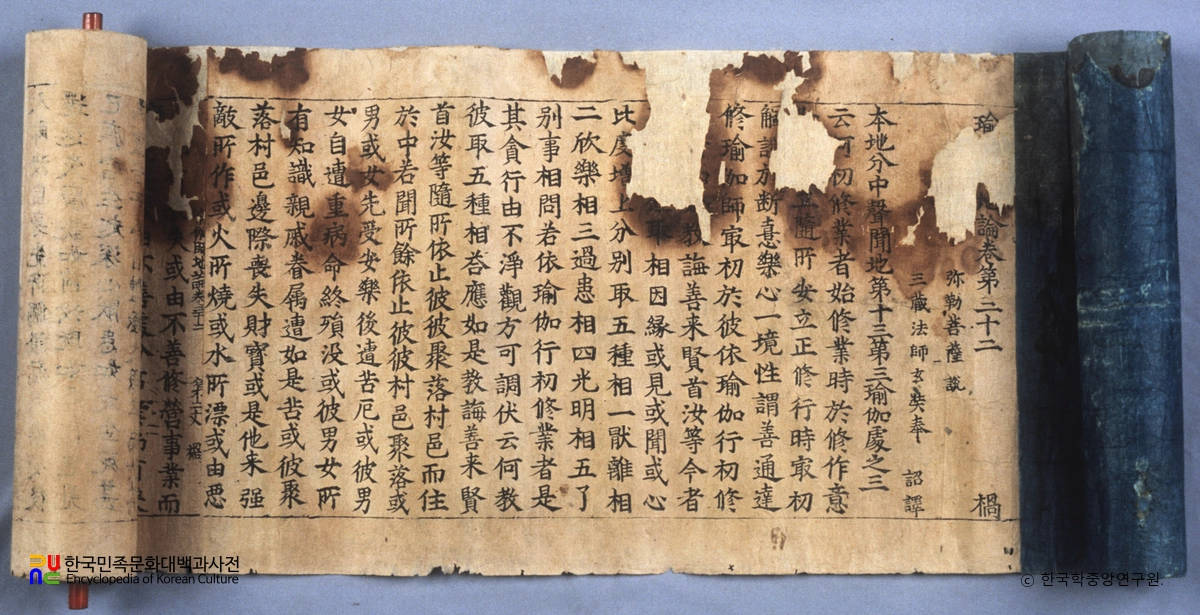 瑜論卷第三十二 禍
弥勒菩薩 說
三藏法師玄奘奉 詔譯
本地分中聲聞地第十三第三瑜伽處之三
云何初修業者始修業時於修作意
立隨所安立正修行時㝡初
斷憙樂心一境性謂善通達
修瑜伽師㝡初於彼依瑜伽行初修
教誨善来賢首汝等今者
取相因緣或見或聞或心
比度增上分別取五種相一猒離相
二欣樂相三過患相四光明相五了
別事相問若依瑜伽行初修業者是
其貪行由不淨觀方可調伏云何教
彼取五種相荅應如是教誨善来賢
首汝等隨所依止彼彼聚落村邑而住
於中若聞所餘依止彼彼村邑聚落或
男或女先受安樂後遭苦厄或彼男
女自遭重病命終殞没或彼男女所
有知識親戚眷屬遭如是苦或彼聚
落村邑邊際喪失財寶或是他来强
敵所作或火所燒或水所漂或由惡
失或由不善修營事業而
한국민족문화대백과사전
Encyclopedia of Korean Culture
© 한국학중앙연구원.